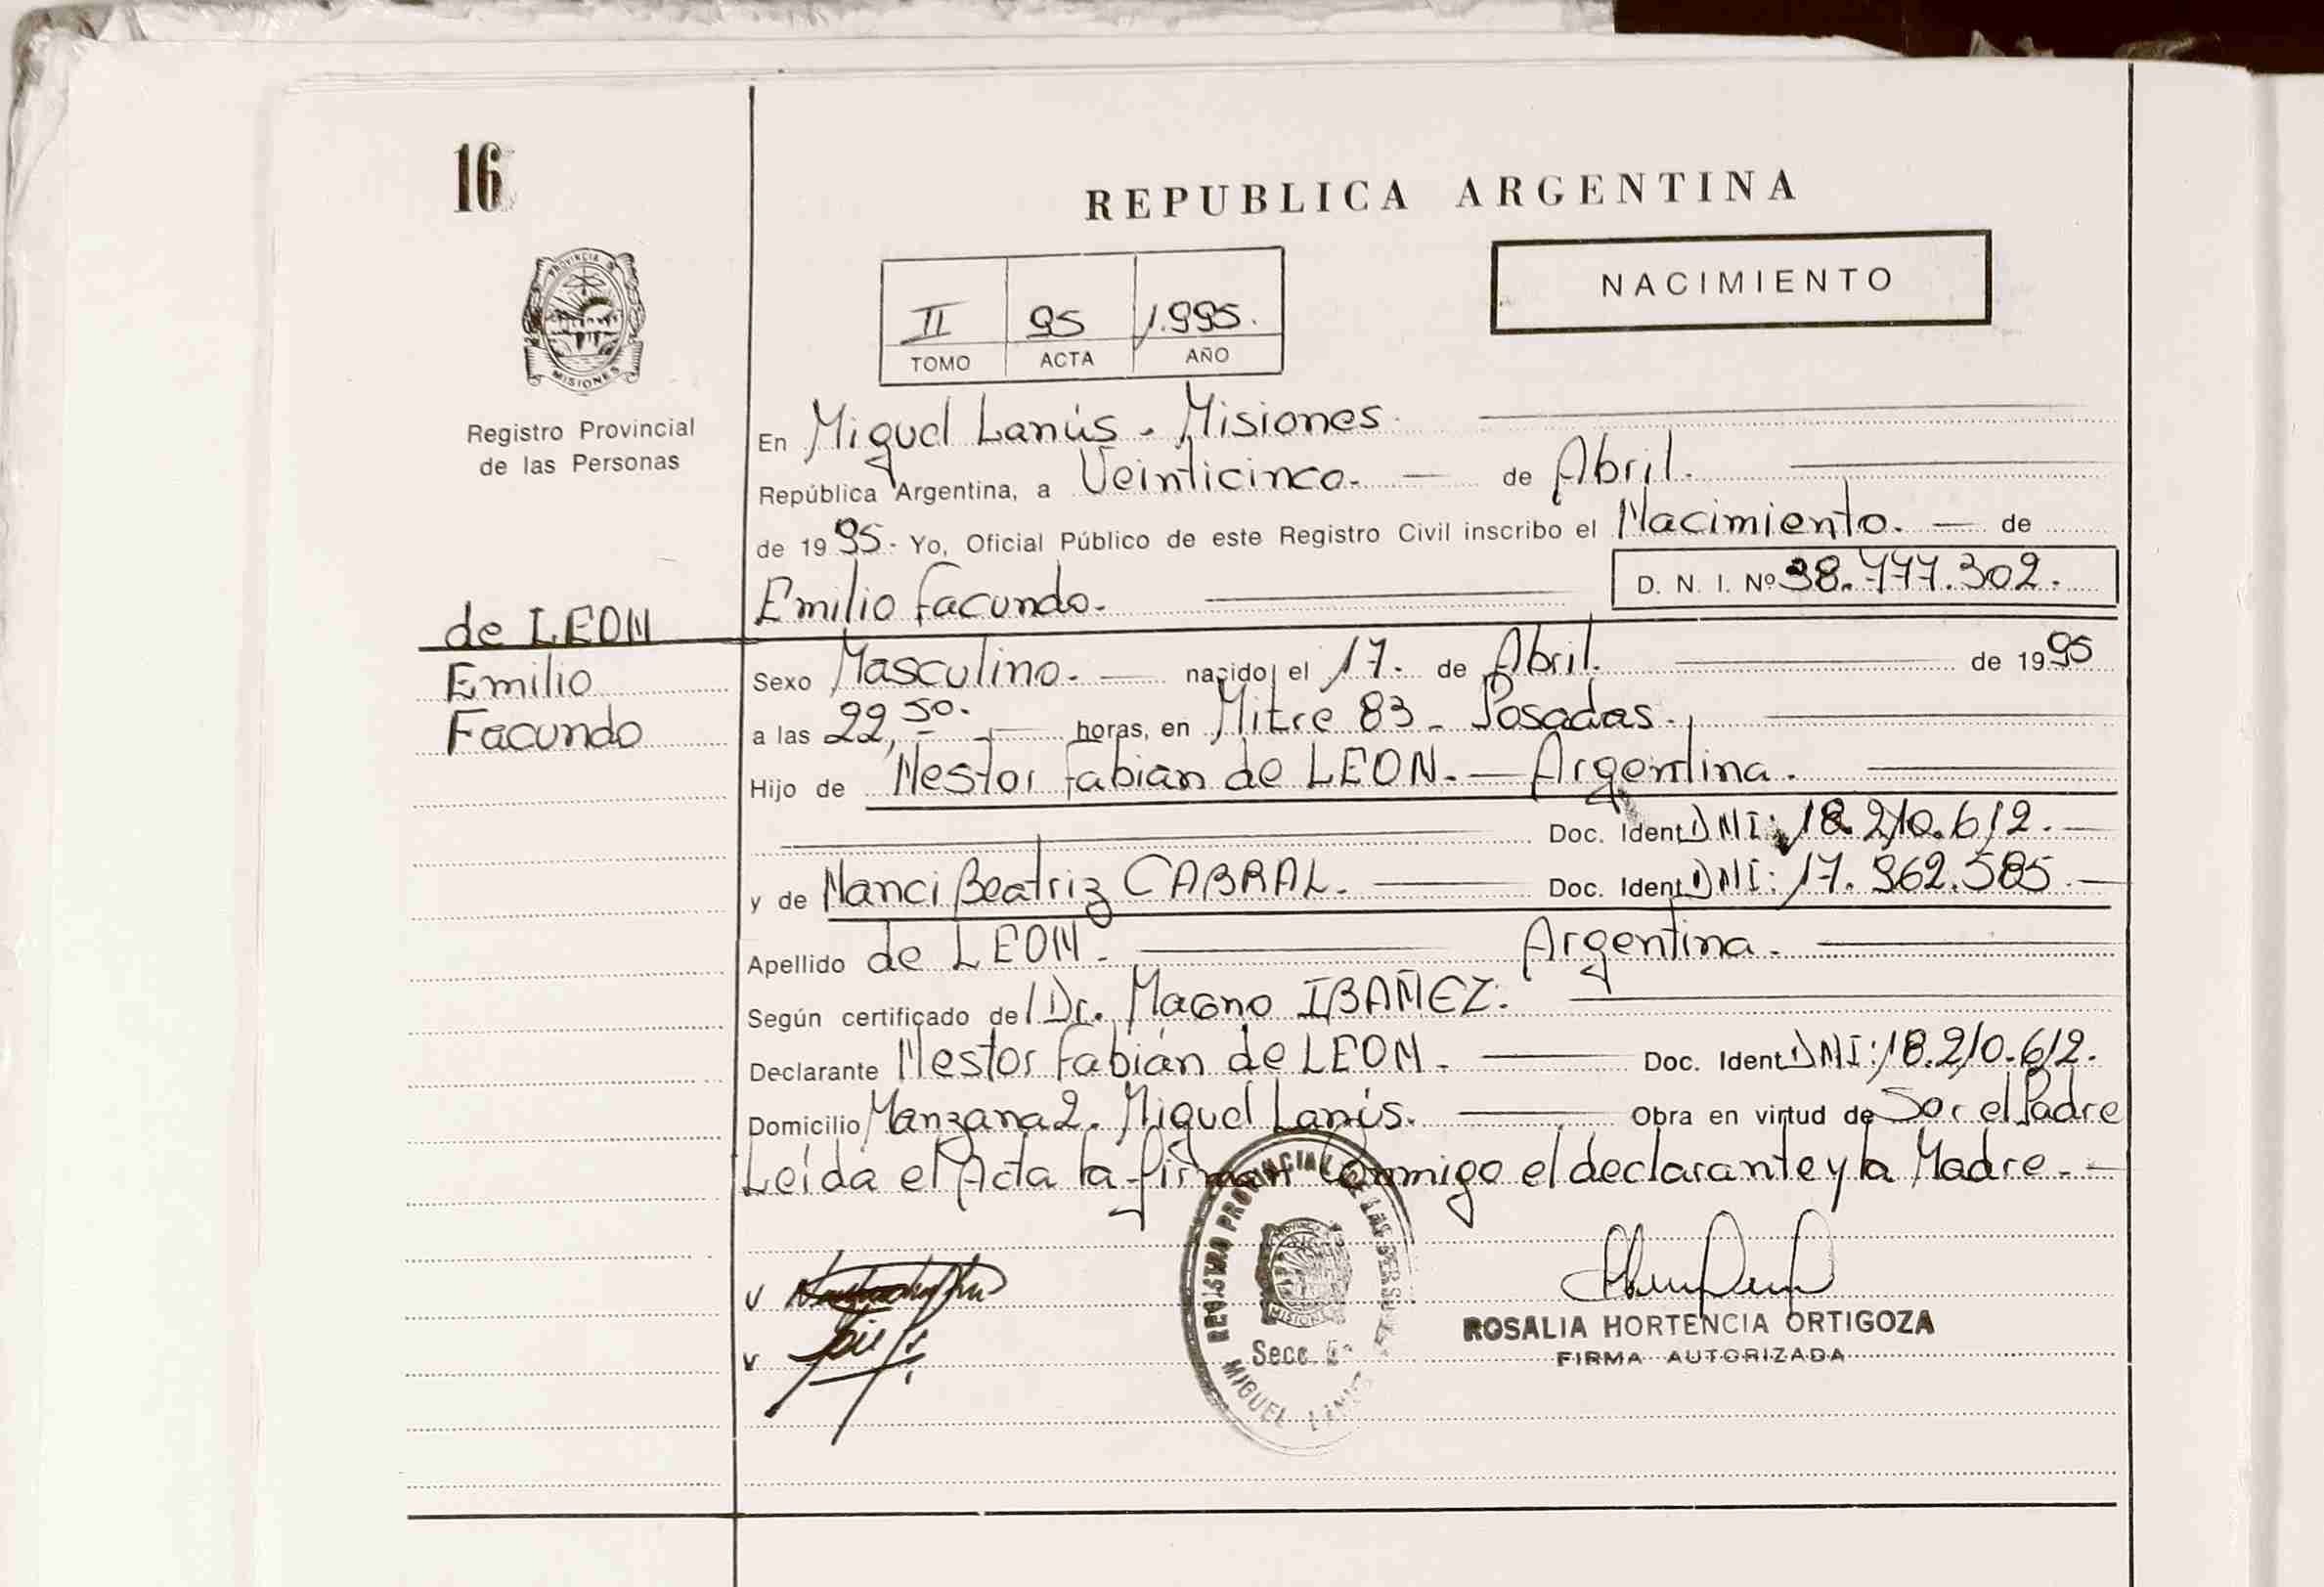 16
REPUBLICA ARGENTINA
PROVINCIA D
MISIONES
Registro Provincial
de las Personas
NACIMIENTO
II 95 1.995.
TOMO ACTA AÑO
En Miguel Lanús - Misiones.
República Argentina, a Veinticinco. — de Abril.
de 1995.- Yo, Oficial Público de este Registro Civil inscribo el Nacimiento. — de
Emilio Facundo. D. N. I. Nº 38.777.302.
de LEON
Emilio
Facundo
Sexo Masculino. — nacido el 17. de Abril. de 1995
a las 22,50. — horas, en Mitre 83 - Posadas.
Hijo de Nestor Fabian de LEON. — Argentina.
Doc. Ident DNI: 18.210.612. —
y de Nanci Beatriz CABRAL. — Doc. Ident DNI: 17.962.585. —
Apellido de LEON. — Argentina. —
Según certificado del Dr. Magno IBAÑEZ.
Declarante Nestor Fabián de LEON. — Doc. Ident DNI: 18.210.612.
Domicilio Manzana 2. Miguel Lanús. — Obra en virtud de Ser el Padre
Leída el Acta la firman Conmigo el declarante y la Madre. —
REGISTRO PROVINCIAL DE LAS PERSONAS
MISIONES
Secc. 5ª
MIGUEL LANUS
ROSALIA HORTENCIA ORTIGOZA
FIRMA AUTORIZADA